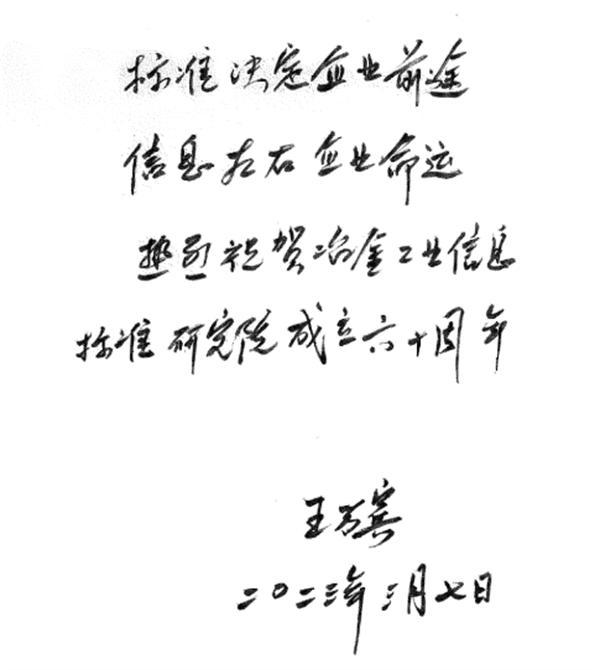 标准决定企业前途
信息左右企业命运
热烈祝贺冶金工业信息
标准研究院成立六十周年
王万宾
二〇二三年三月七日